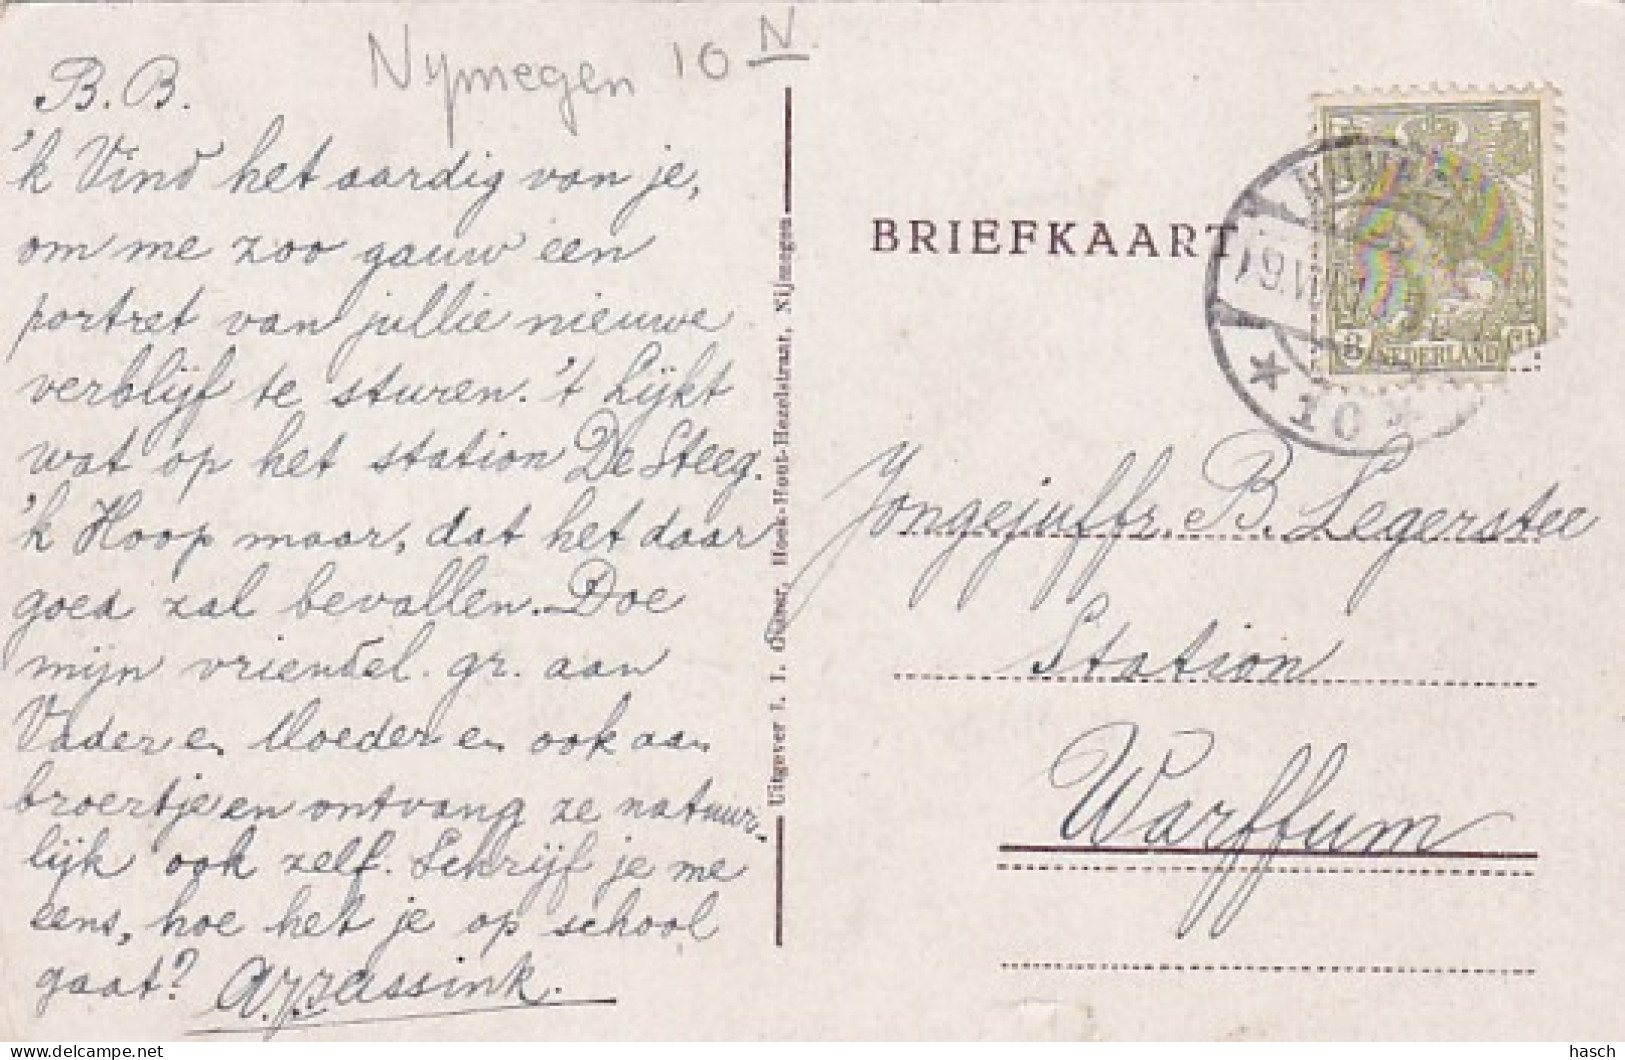 Nymegen 10 N
B. B.
'k Vind het aardig van je,
om me zoo gauw een
portret van jullie nieuwe
verblijf te sturen. 't Lijkt
wat op het station De Steeg.
'k Hoop maar, dat het daar
goed zal bevallen. Doe
mijn vriendel. gr. aan
Vader en Moeder en ook aan
broertje en ontvang ze natuur-
lijk ook zelf. Schrijf je me
eens, hoe het je op school
gaat?
Uitgever J. J. Hoek-Hout-Hezelstraat, Nijmegen
BRIEFKAART
NEDERLAND
10
Jongejuffr. B. Legerstee
Station
Warffum
delcampe.net
hasch